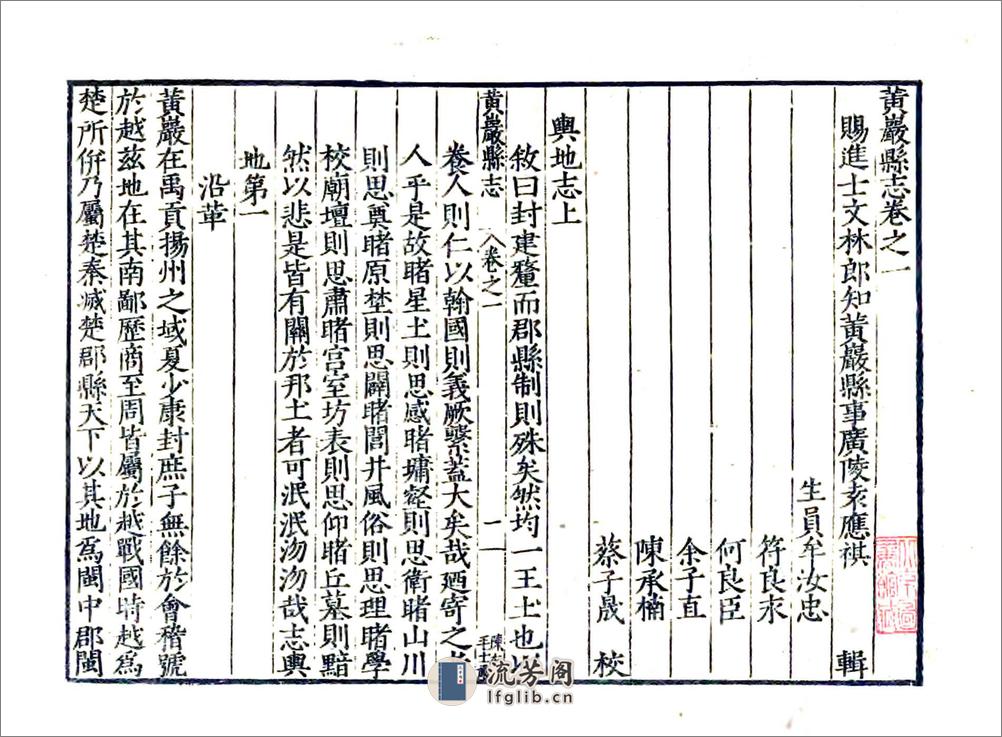 黃巖縣志卷之一
賜進士文林郎知黃巖縣事廣陵袁應祺 輯
生員牟汝忠
符良求
何良臣
余子直
陳承楠
蔡子晟 校
輿地志上
敘曰封建釐而郡縣制則殊矣然均一王土也以
黃巖縣志 卷之一 一
養人則仁以翰國則義厥繫蓋大矣哉廼寄之
人乎是故睹星土則思感睹墉壑則思衛睹山川
則思奠睹原埜則思闢睹閭井風俗則思理睹學
校廟壇則思肅睹宮室坊表則思仰睹丘墓則黯
然以悲是皆有關於邦土者可泯泯沕沕哉志輿
地第一
沿革
黃巖在禹貢揚州之域夏少康封庶子無餘於會稽號
於越茲地在其南鄙歷商至周皆屬於越戰國時越爲
楚所併乃屬楚秦滅楚郡縣天下以其地爲閩中郡閩
流芳阁
lfglib.cn